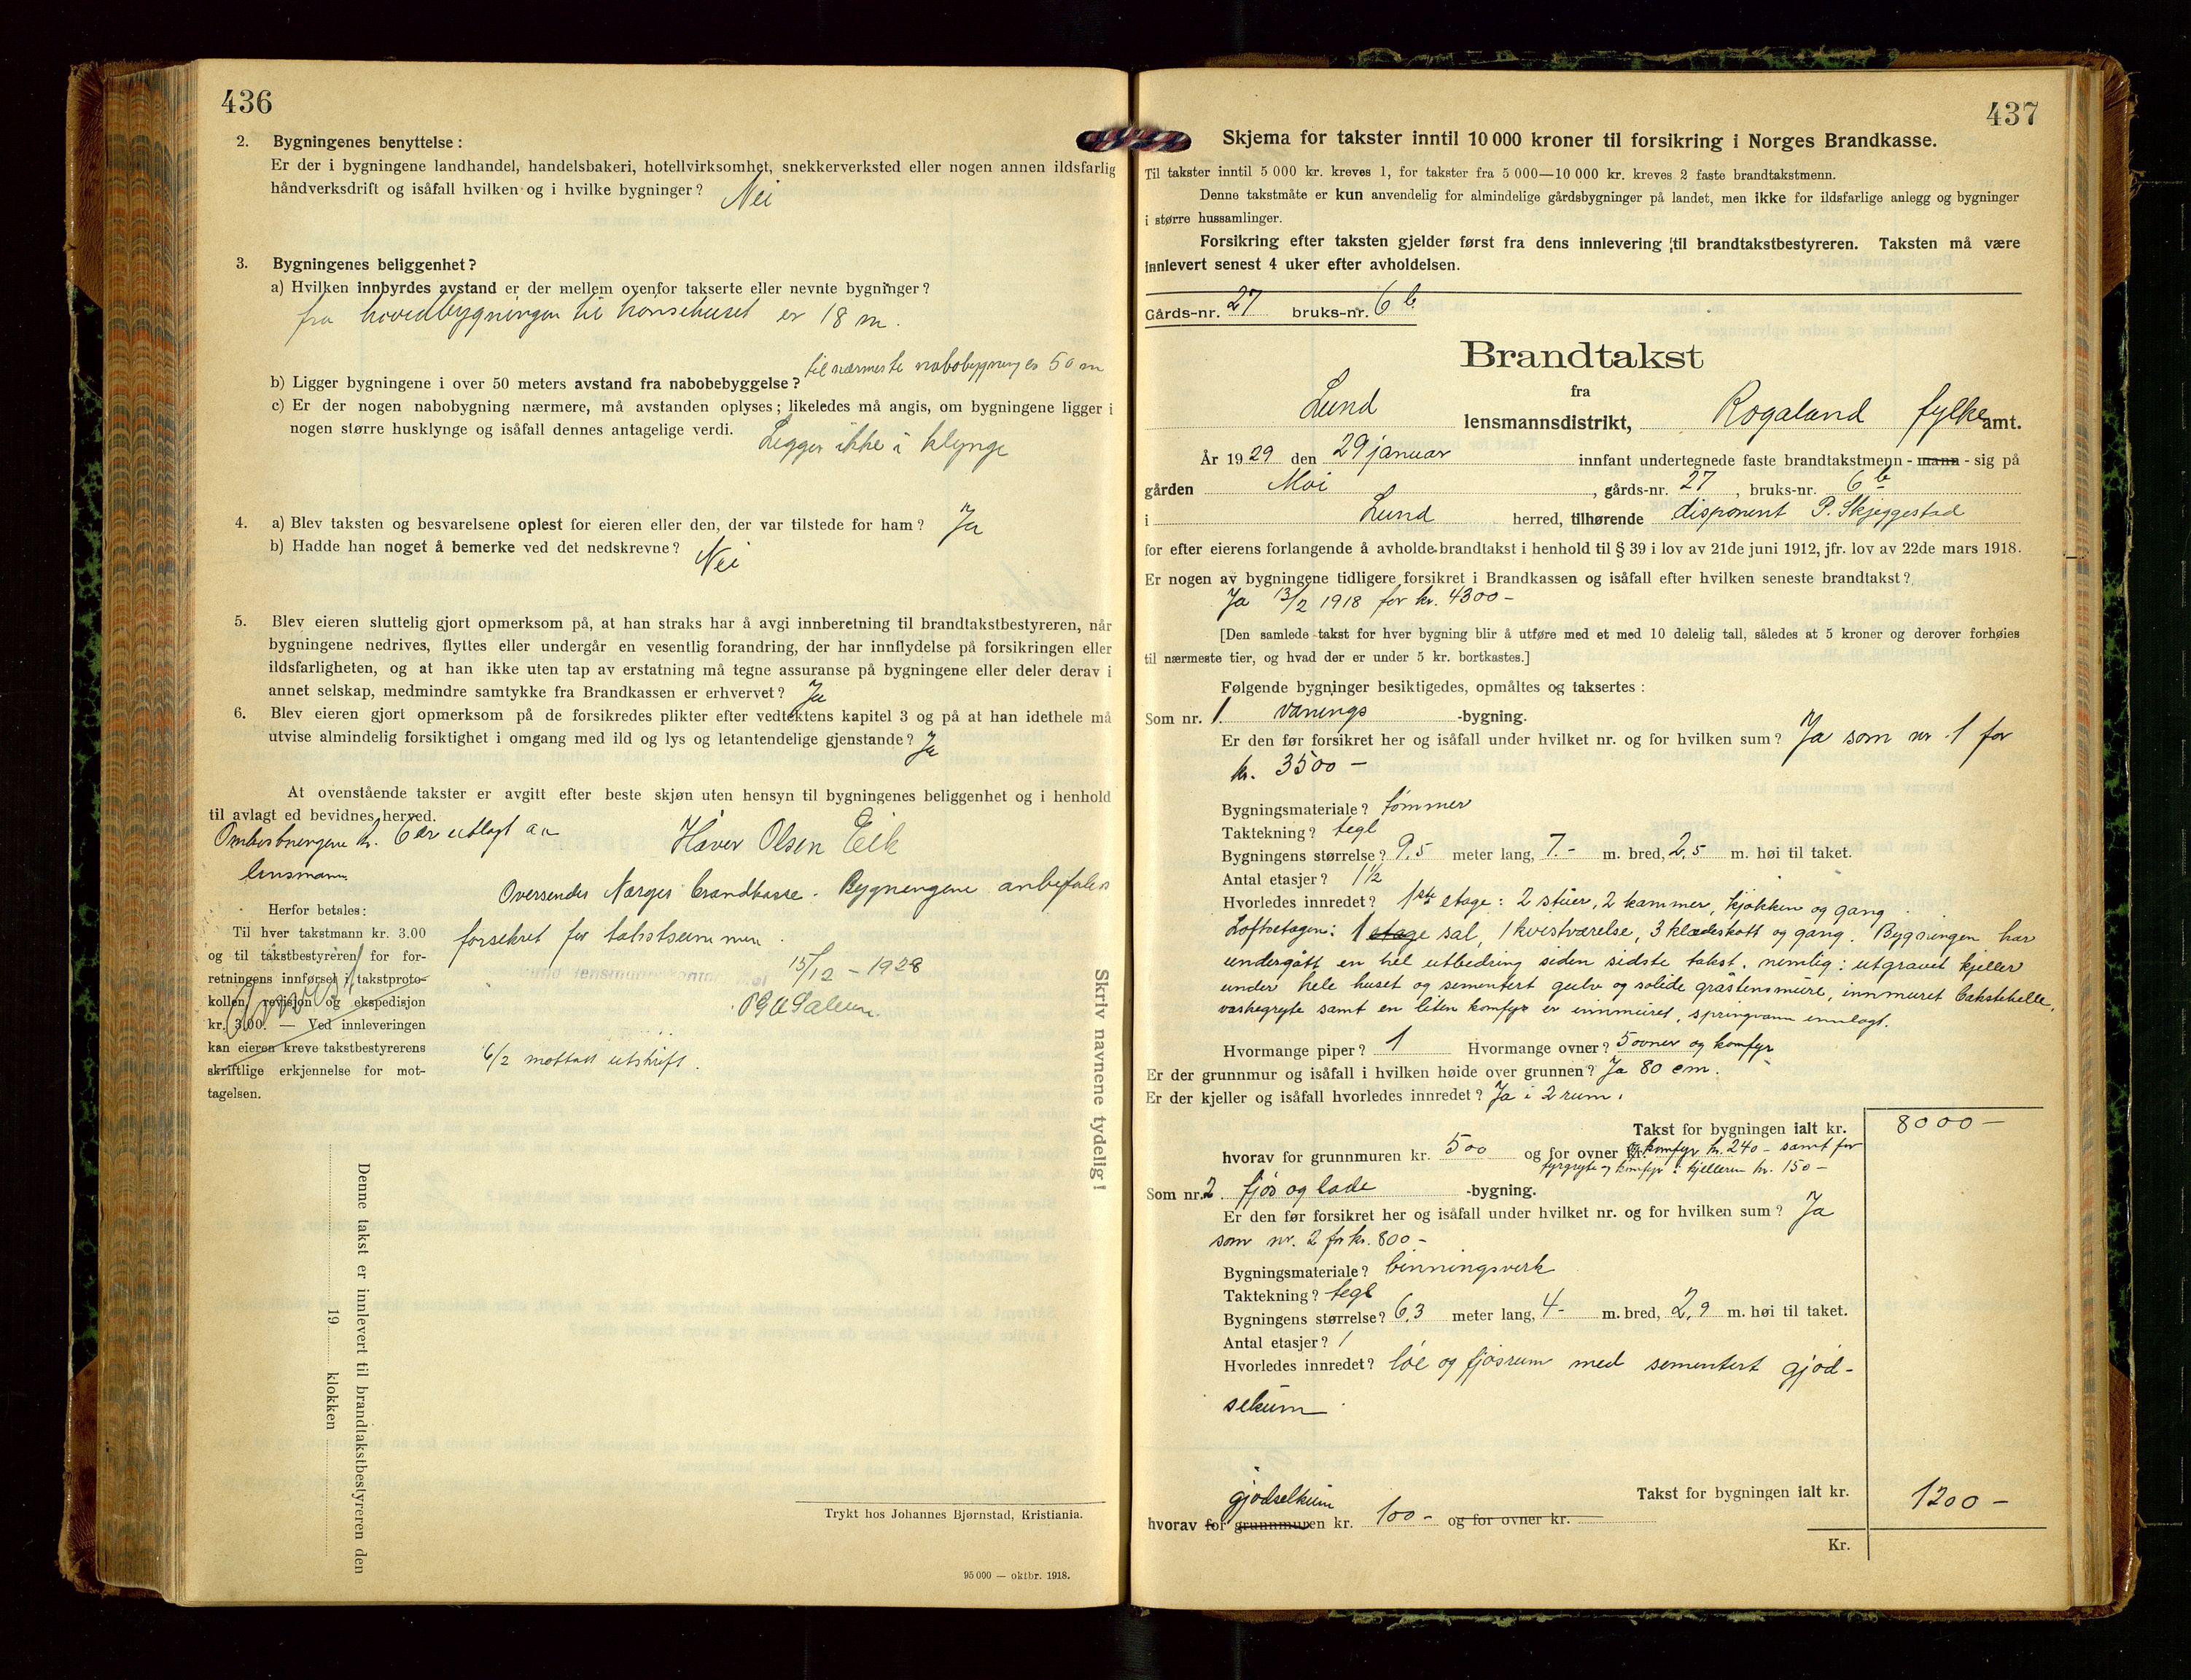 436
2. Bygningenes benyttelse:
Er der i bygningene landhandel, handelsbakeri, hotellvirksomhet, snekkerverksted eller nogen annen ildsfarlig
håndverksdrift og isåfall hvilken og i hvilke bygninger? Nei
3. Bygningenes beliggenhet?
a) Hvilken innbyrdes avstand er der mellem ovenfor takserte eller nevnte bygninger?
fra hovedbygningen til hønsehuset er 18 m.
til nærmeste nabobygning er 50 m
b) Ligger bygningene i over 50 meters avstand fra nabobebyggelse?
c) Er der nogen nabobygning nærmere, må avstanden oplyses; likeledes må angis, om bygningene ligger i
nogen større husklynge og isåfall dennes antagelige verdi. Ligger ikke i klynge
4. a) Blev taksten og besvarelsene oplest for eieren eller den, der var tilstede for ham? Ja
b) Hadde han noget å bemerke ved det nedskrevne? Nei
5. Blev eieren sluttelig gjort opmerksom på, at han straks har å avgi innberetning til brandtakstbestyreren, når
bygningene nedrives, flyttes eller undergår en vesentlig forandring, der har innflydelse på forsikringen eller
ildsfarligheten, og at han ikke uten tap av erstatning må tegne assuranse på bygningene eller deler derav i
annet selskap, medmindre samtykke fra Brandkassen er erhvervet? Ja
6. Blev eieren gjort opmerksom på de forsikredes plikter efter vedtektens kapitel 3 og på at han idethele må
utvise almindelig forsiktighet i omgang med ild og lys og letantendelige gjenstande? Ja
At ovenstående takster er avgitt efter beste skjøn uten hensyn til bygningenes beliggenhet og i henhold
til avlagt ed bevidnes herved.
Omkostningene kr. 6 er utlagt av
lensmann
Håver Olsen Eik
Oversendes Norges brandkasse. Bygningene anbefales
forsikret for takstsummen.
15/12 - 1928
6/2 mottatt utskrift.
Herfor betales:
Til hver takstmann kr. 3.00
og til takstbestyreren for for-
retningens innførsel i takstproto-
kollen, revisjon og ekspedisjon
kr. 3.00. — Ved innleveringen
kan eieren kreve takstbestyrerens
skriftlige erkjennelse for mot-
tagelsen.
Denne takst er innlevert til brandtakstbestyreren den
19 klokken
Skriv navnene tydelig!
Trykt hos Johannes Bjørnstad, Kristiania.
95 000 — oktbr. 1918.
437
Skjema for takster inntil 10 000 kroner til forsikring i Norges Brandkasse.
Til takster inntil 5 000 kr. kreves 1, for takster fra 5 000—10 000 kr. kreves 2 faste brandtakstmenn.
Denne takstmåte er kun anvendelig for almindelige gårdsbygninger på landet, men ikke for ildsfarlige anlegg og bygninger
i større hussamlinger.
Forsikring efter taksten gjelder først fra dens innlevering til brandtakstbestyreren. Taksten må være
innlevert senest 4 uker efter avholdelsen.
Gårds-nr. 27 bruks-nr. 6 b
Brandtakst
fra
Lund lensmannsdistrikt, Rogaland fylke amt.
År 1929 den 29 januar innfant undertegnede faste brandtakstmenn - mann - sig på
gården Moi, gårds-nr. 27, bruks-nr. 6 b
i Lund herred, tilhørende disponent P. Skjeggestad
for efter eierens forlangende å avholde brandtakst i henhold til § 39 i lov av 21de juni 1912, jfr. lov av 22de mars 1918.
Er nogen av bygningene tidligere forsikret i Brandkassen og isåfall efter hvilken seneste brandtakst?
Ja 13/2 1918 for kr. 4300 -
[Den samlede takst for hver bygning blir å utføre med et med 10 delelig tall, således at 5 kroner og derover forhøies
til nærmeste tier, og hvad der er under 5 kr. bortkastes.]
Følgende bygninger besiktigedes, opmåltes og taksertes:
Som nr. 1 vånings -bygning.
Er den før forsikret her og isåfall under hvilket nr. og for hvilken sum? Ja som nr 1 for
kr. 3500 -
Bygningsmateriale? tømmer
Taktekning? tegl
Bygningens størrelse? 9,5 meter lang, 7.- m. bred, 2,5 m. høi til taket.
Antal etasjer? 1½
Hvorledes innredet? 1ste etage: 2 stuer, 2 kammer, kjøkken og gang
Loftsetagen: 1 etage sal, 1 kvistværelse, 3 klædeskott og gang. Bygningen har
undergått en hel utbedring siden sidste takst. nemlig: utgravet kjeller
under hele huset og sementert gulv og solide gråstensmure, innmuret bakstehelle,
vaskegryte samt en liten komfyr er innmuret, springvann innlagt.
Hvormange piper? 1 Hvormange ovner? 5 ovner og komfyr
Er der grunnmur og isåfall i hvilken høide over grunnen? Ja 80 cm.
Er der kjeller og isåfall hvorledes innredet? Ja i 2 rum.
Takst for bygningen ialt kr. 8000 -
hvorav for grunnmuren kr. 500 og for ovner og komfyr kr. 240 - samt for
fyrgryte og komfyr i kjelleren kr. 150 -
Som nr. 2 fjøs og lade -bygning.
Er den før forsikret her og isåfall under hvilket nr. og for hvilken sum? Ja
som nr. 2 for kr. 800 -
Bygningsmateriale? binningsverk
Taktekning? tegl
Bygningens størrelse? 6,3 meter lang, 4- m. bred, 2,9 m. høi til taket.
Antal etasjer? 1
Hvorledes innredet? løe og fjøsrum med sementert gjød-
selkum
Takst for bygningen ialt kr. 1200 -
gjødselkum
hvorav for grunnmuren kr. 100 - og for ovner kr.
Kr.